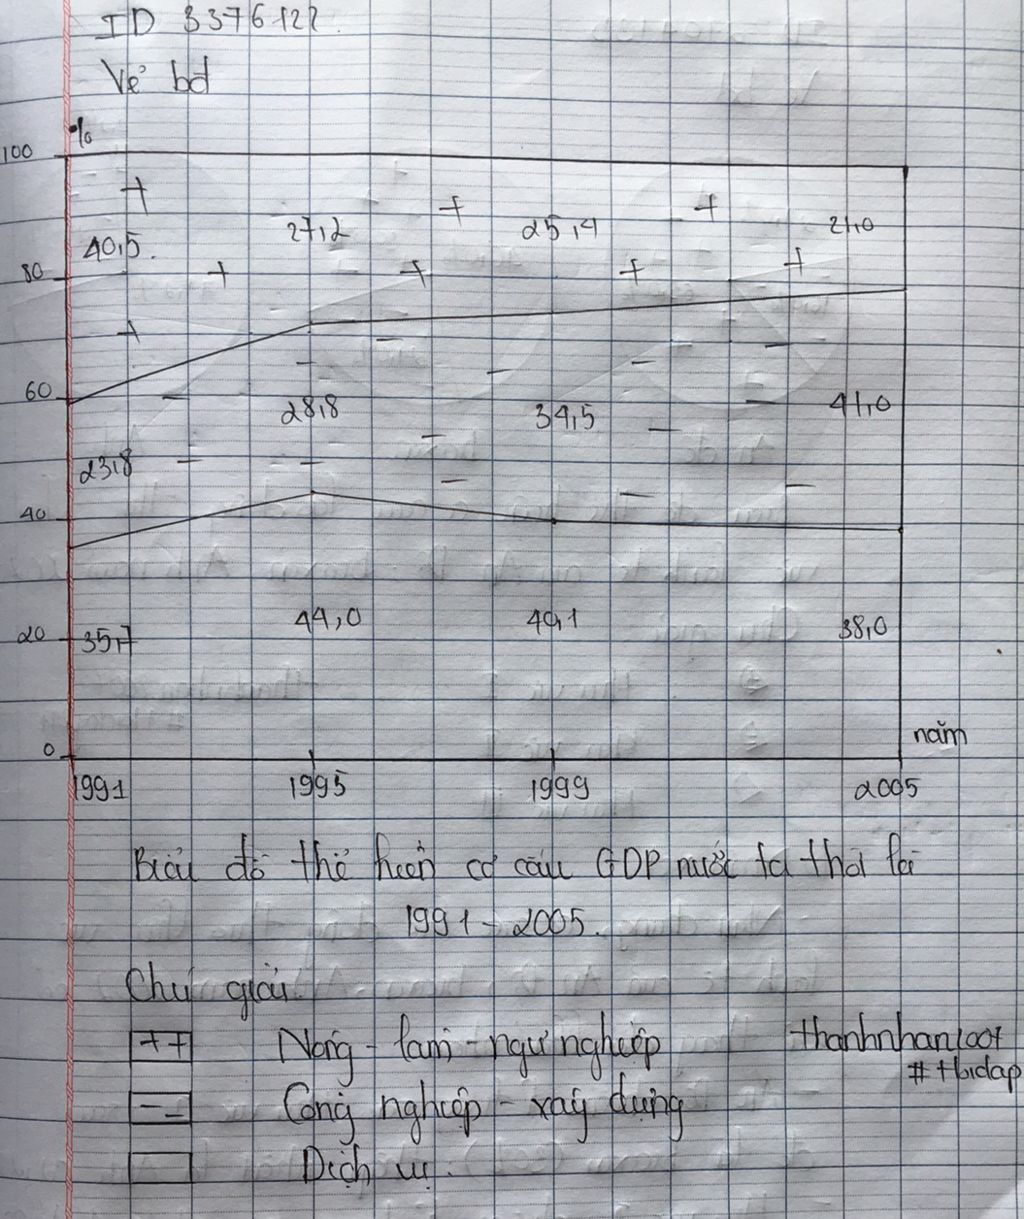 ID 3376122.
Vẽ bđ
%
100
40,5. 27,2 25,4 21,0
80
60
23,8 28,8 34,5 41,0
40
20 35,7 44,0 40,1 38,0
0 năm
1991 1995 1999 2005
Biểu đồ thể hiện cơ cấu GDP nước ta thời kì
1991 - 2005.
Chú giải.
++ Nông - lâm - ngư nghiệp
-- Công nghiệp - xây dựng
Dịch vụ.
thanhnhan1007
#tbidap